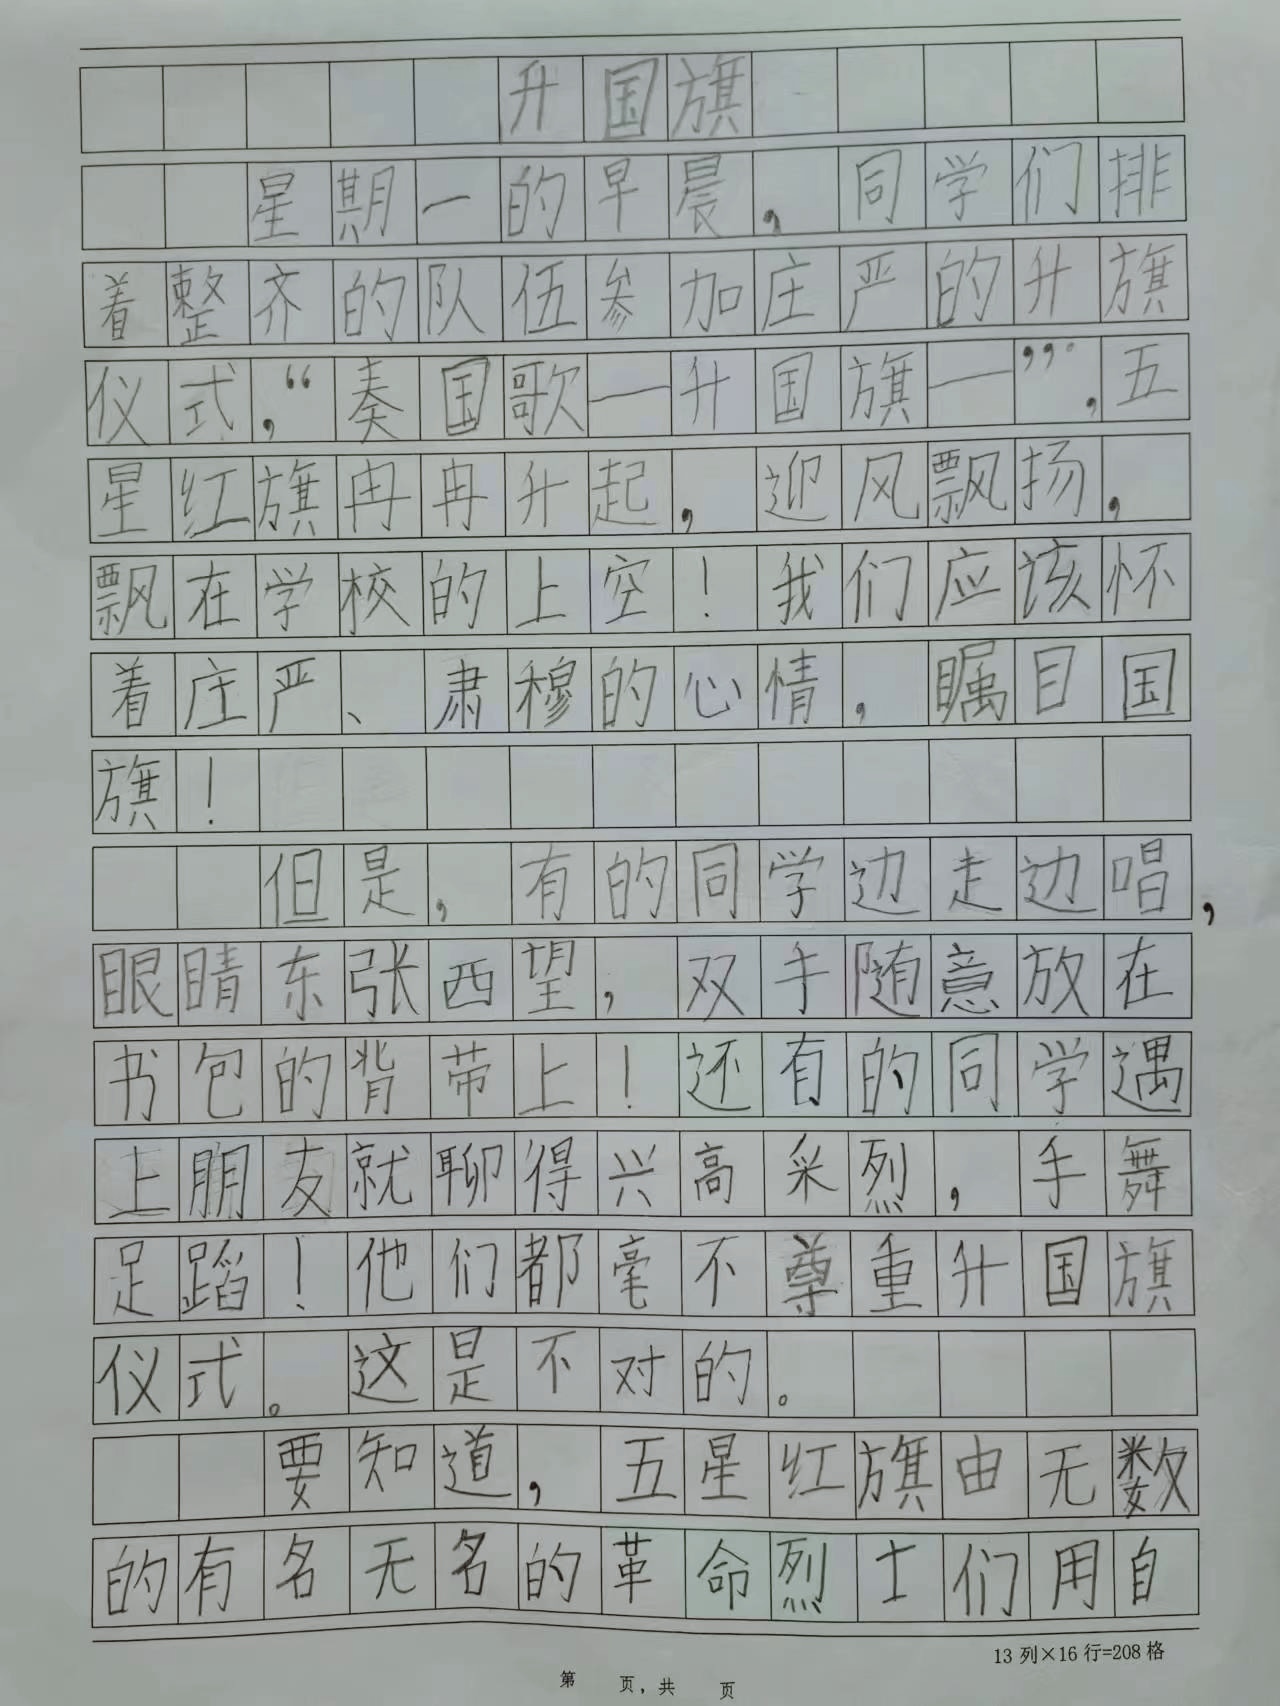 升国旗
星期一的早晨，同学们排
着整齐的队伍参加庄严的升旗
仪式，“奏国歌—升国旗—”，五
星红旗冉冉升起，迎风飘扬，
飘在学校的上空！我们应该怀
着庄严、肃穆的心情，瞩目国
旗！
但是，有的同学边走边唱，
眼睛东张西望，双手随意放在
书包的背带上！还有的同学遇
上朋友就聊得兴高采烈，手舞
足蹈！他们都毫不尊重升国旗
仪式。这是不对的。
要知道，五星红旗由无数
的有名无名的革命烈士们用自
13列×16行=208格
第 页，共 页